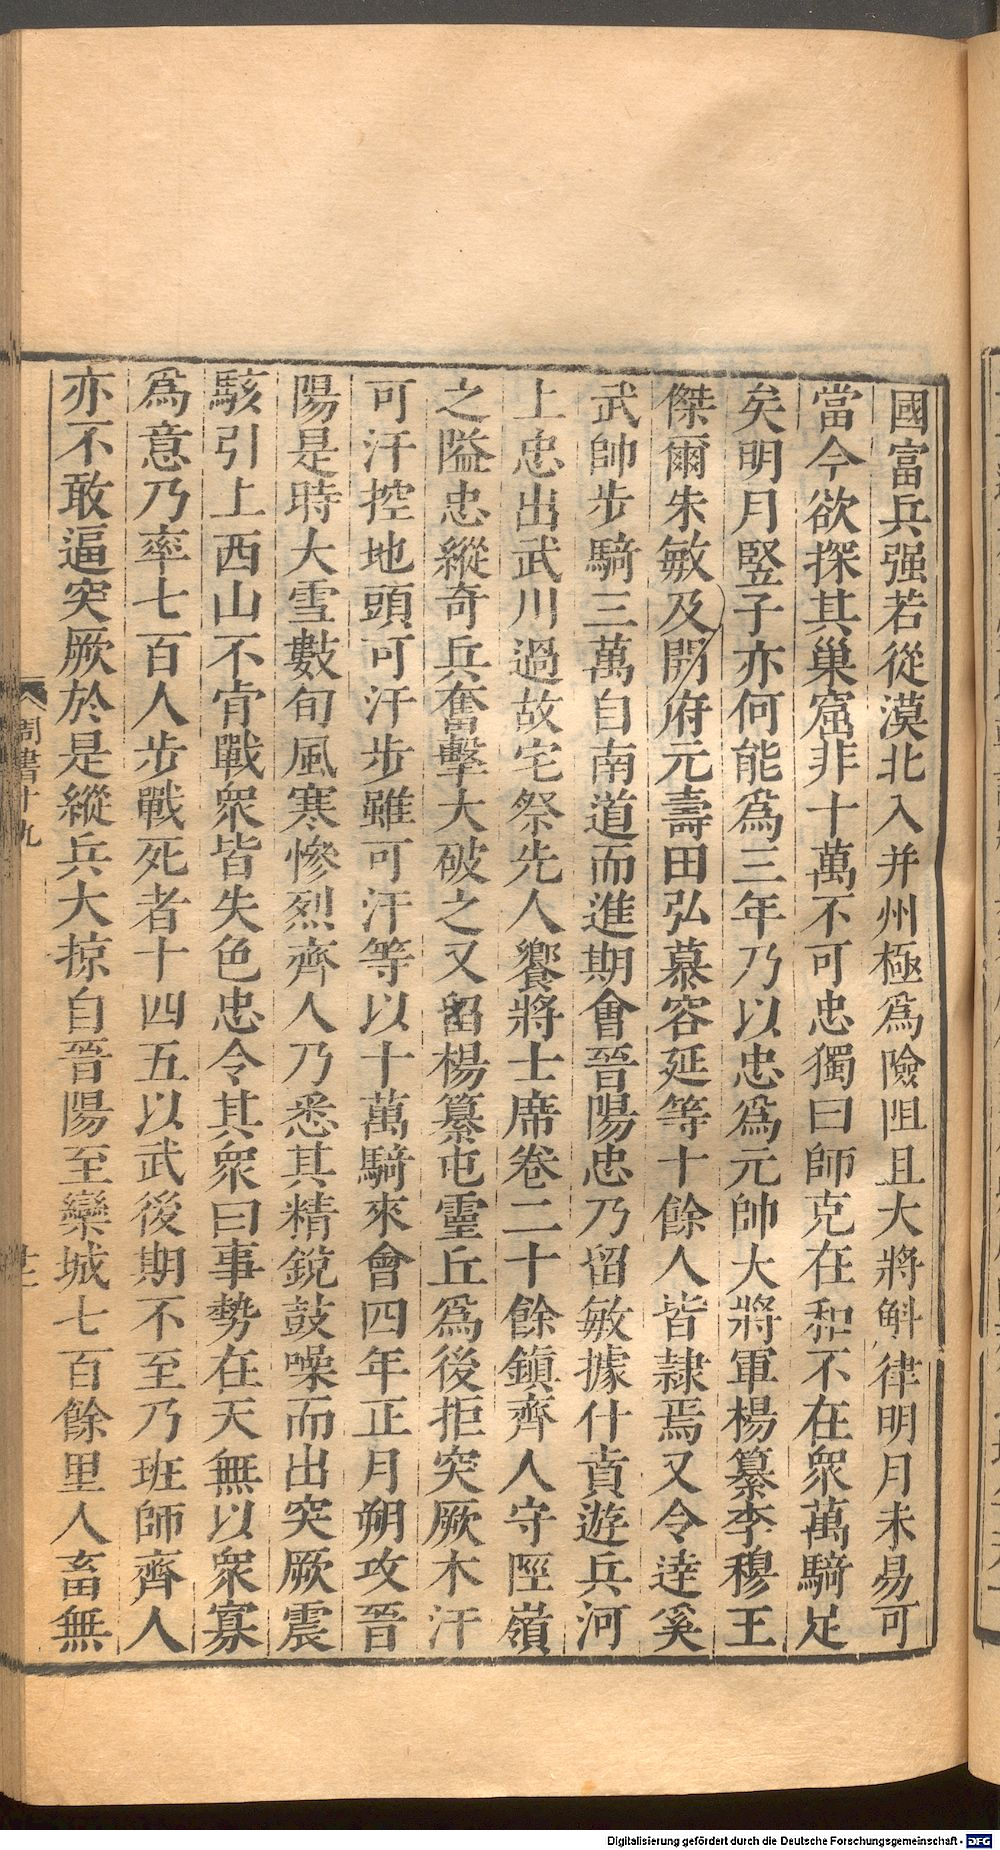 國富兵强若從漠北入并州極爲險阻且大將斛律明月未易可
當今欲探其巢窟非十萬不可忠獨曰師克在和不在衆萬騎足
矣明月竪子亦何能爲三年乃以忠爲元帥大將軍楊纂李穆王
傑爾朱敏及開府元壽田弘慕容延等十餘人皆隷焉又令逹奚
武帥步騎三萬自南道而進期會晉陽忠乃留敏據什賁遊兵河
上忠出武川過故宅祭先人饗將士席卷二十餘鎮齊人守陘嶺
之隘忠縱奇兵奮擊大破之又留楊纂屯靈丘爲後拒突厥木汗
可汗控地頭可汗步離可汗等以十萬騎來會四年正月朔攻晉
陽是時大雪數旬風寒慘烈齊人乃悉其精銳鼓噪而出突厥震
駭引上西山不肯戰衆皆失色忠令其衆曰事勢在天無以衆寡
爲意乃率七百人步戰死者十四五以武後期不至乃班師齊人
亦不敢逼突厥於是縱兵大掠自晉陽至欒城七百餘里人畜無
周書十九
Digitalisierung gefördert durch die Deutsche Forschungsgemeinschaft - DFG